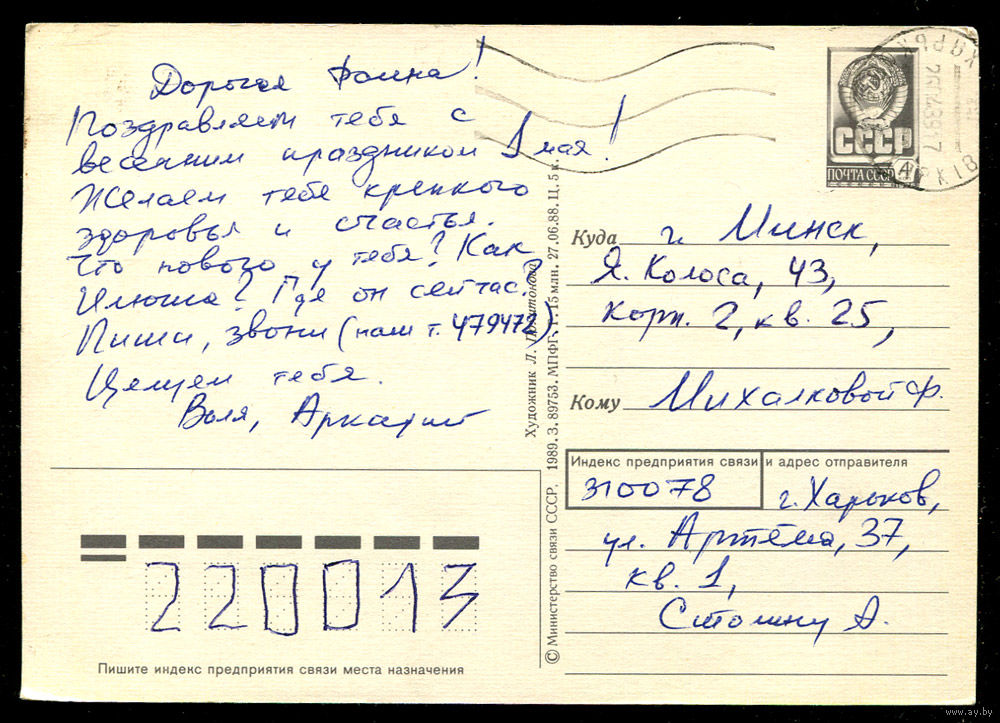 Дорогая Фаина!
Поздравляем тебя с
весенним праздником 1 мая!
Желаем тебе крепкого
здоровья и счастья.
Что нового у тебя? Как
Илюша? Где он сейчас?
Пиши, звони (наш т. 479472)
Целуем тебя.
Воля, Аркадий
СССР
ПОЧТА СССР
Куда г. Минск,
Я. Коласа, 43,
корп. 2, кв. 25,
Кому Михалковой Ф.
Индекс предприятия связи и адрес отправителя
310078 г. Харьков,
ул. Артёма, 37,
кв. 1,
Столину А.
© Министерство связи СССР. 1989. З. 89753. МПФГ. Т. 15 млн. 27.06.88. Ц. 5 к.
Художник Л.
220013
Пишите индекс предприятия связи места назначения
www.ay.by